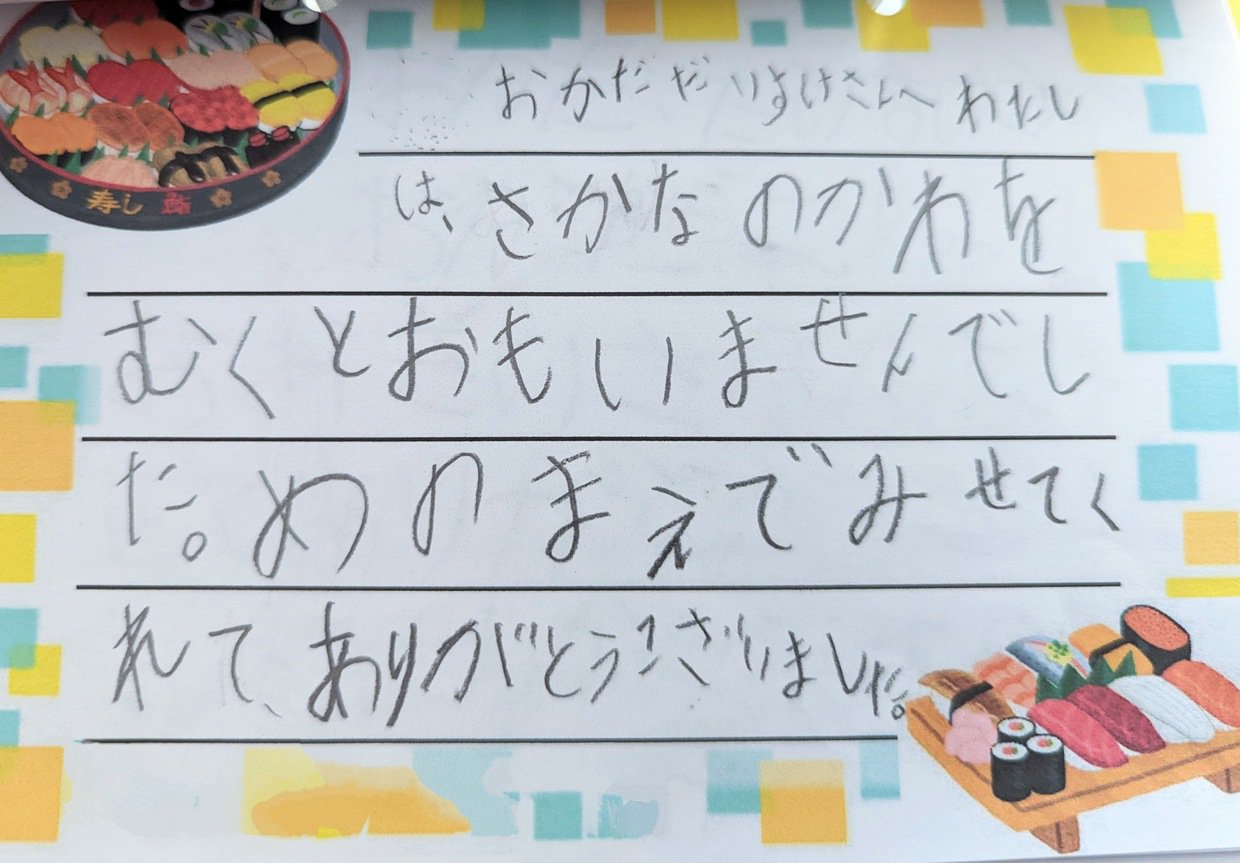 寿し 鮨
おかだだいすけさんへ わたし
は、さかなのかわを
むくとおもいませんでし
た。めのまえでみせてく
れて、ありがとうございました。